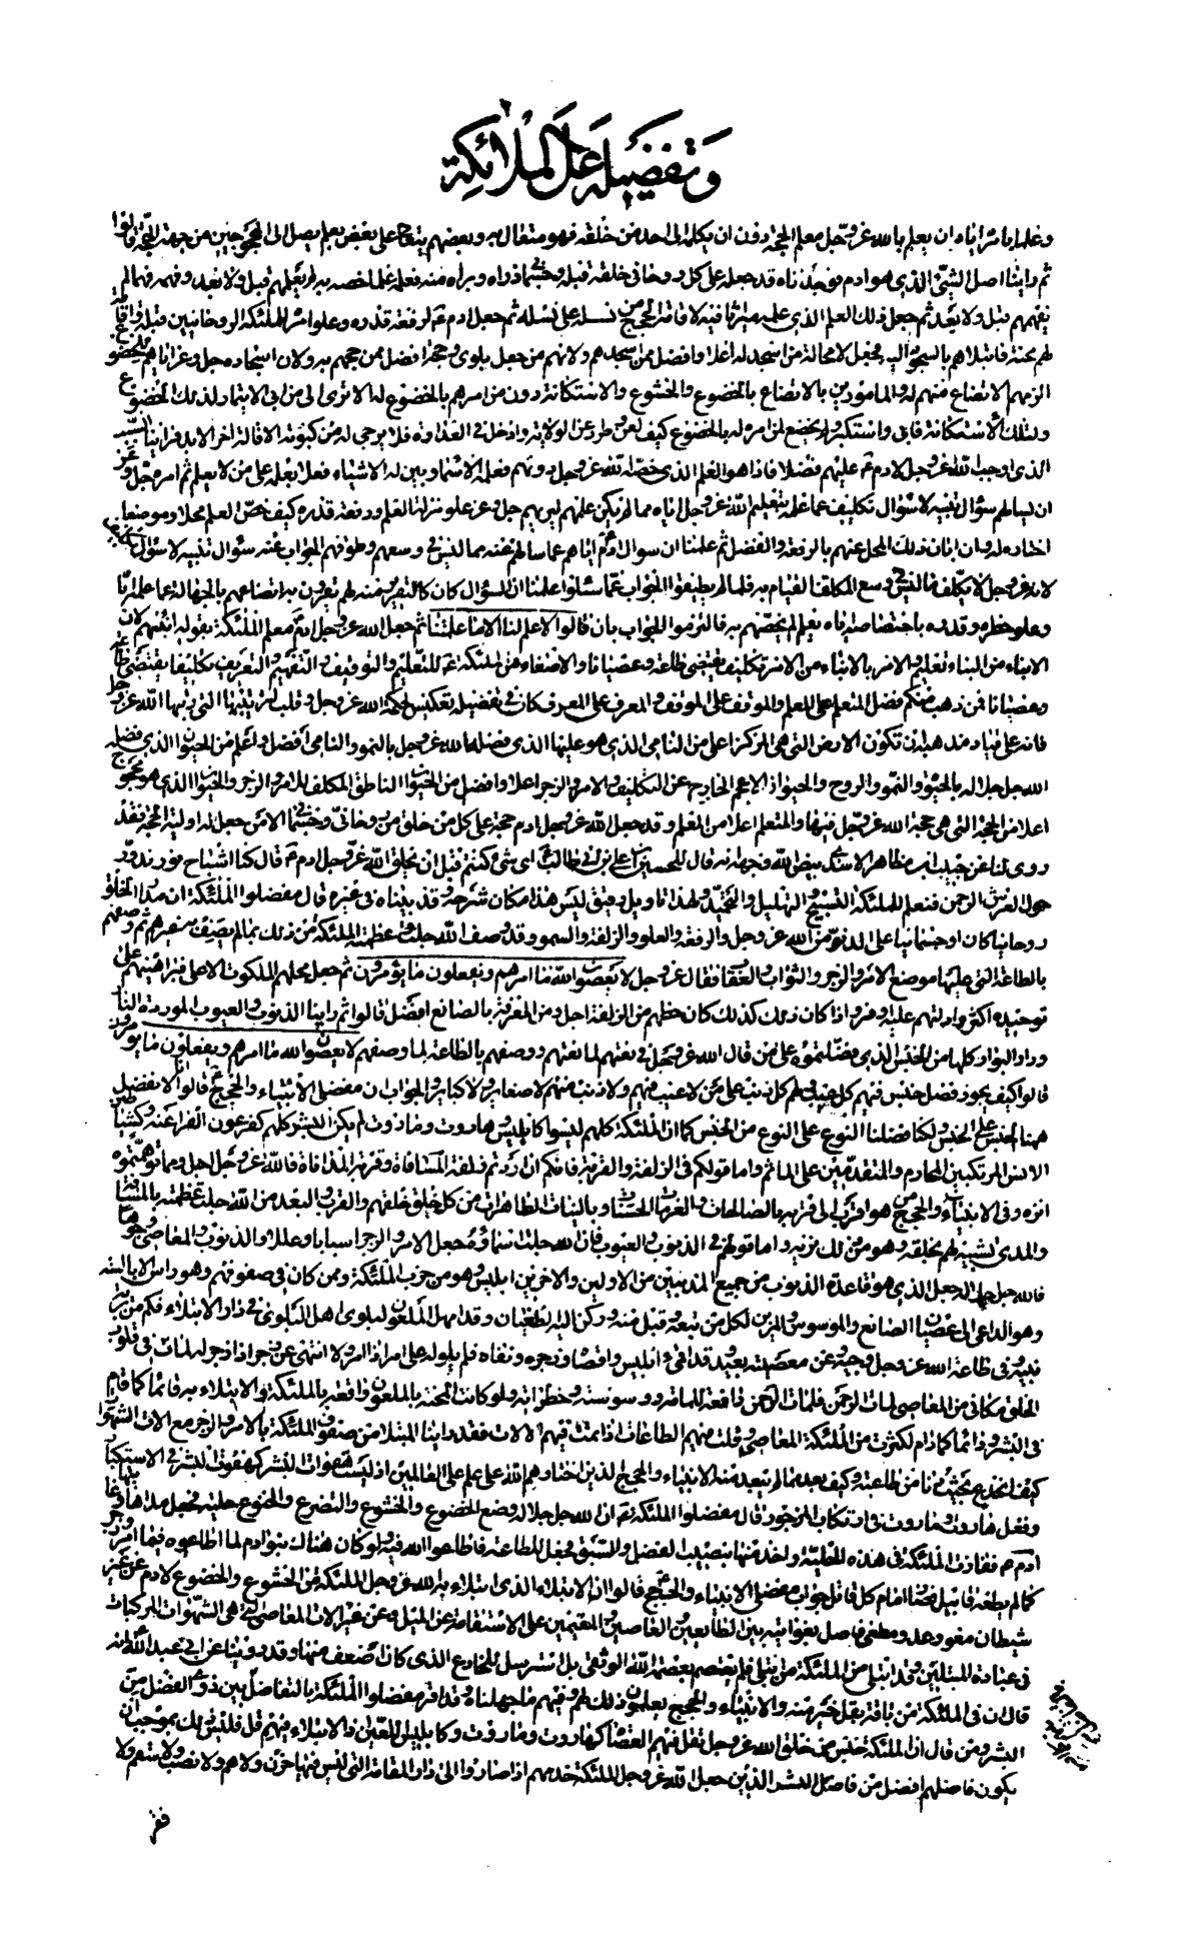 وتفضيله على الملائكة
وعلمنا بأمر اياه ان يعلم بالله عز وجل معلم الحجة دون ان يكله الى احد من خلقه فهو متعال به وبعضهم يحتاج على بعض بعلم يصل الى المحجوجين من جهة الحجة قالوا
ثم راينا اصل الشئ الذي هو ادم فوجدناه قد جعله على كل روحاني خلقه قبله وجسماني ذراه وبراه منه فعلمه علما خصه به لم يعلمهم قبل ولا بعد وفهمه فهما لم
يفهمهم قبل ولا بعد ثم جعل ذلك العلم الذي علمه ميراثا فيه لاقامة الحجج من نسله على نسله ثم جعل ادم لرفعة قدره وعلو امره للملئكة الروحانيين قبلة واقامه
لهم محنة فابتلاهم بالسجود اليه فجعل لا محالة من اسجد له اعلا وافضل ممن اسجدهم ولانهم من جعل بلوى وحجة افضل ممن حجهم به ولان اسجاده جل وعز اياهم للخضوع
الزمهم الاتضاع منهم له والمامورين بالاتضاع بالخضوع والخشوع والاستكانة دون من امرهم بالخضوع له الا ترى الى من ابى الايتمار لذلك الخضوع
ولتلك الاستكانة فابى واستكبر ولم يخضع لمن امره له بالخضوع كيف لعن وطرد عن الولاية وادخل في العداوة فلا يرجى له من كبوته الاقالة اخر الابد فراينا السبب
الذي اوجب الله عز وجل لادم عليهم فضلا فاذا هو العلم الذي خصه الله عز وجل دونهم فعلمه الاسماء وبين له الاشياء فعلا بعلمه على من لا يعلم ثم امره جل وعز
ان يسالهم سؤال تنبيه لا سؤال تكليف عما علمه بتعليم الله عز وجل اياه مما لم يكن علمهم ليريهم جل وعز علو منزلة العلم ورفعة قدره كيف خص العلم محلا وموضعا
اختاره له وابان ذلك المحل عنهم بالرفعة والفضل ثم علمنا ان سؤال ادم اياهم عما سالهم عنه مما ليس في وسعهم وطوقهم الجواب عنه سؤال تنبيه لا سؤال تكليف
لانه عز وجل لا يكلف ما ليس في وسع المكلف القيام به فلما لم يطيقوا الجواب عما سئلوا علمنا ان السؤال كان كالتقرير منه لهم يقررون به اتضاعهم بالجهالة عما علمه اياه
وعلو خطره وقدره باختصاصه اياه بعلم لم يخصهم به فالتزموا الجواب بان قالوا لا علم لنا الا ما علمتنا ثم جعل الله عز وجل ادم معلم الملئكة بقوله انبئهم لان
الانباء من النباء تعليم والامر بالانباء من الامر تكليف يقتضي طاعة وعصيانا والاصغاء من الملئكة للتعليم والتوقيف والتفهيم والتعريف تكليف يقتضي طاعة
وعصيانا فمن ذهب منكم الى فضل المتعلم على المعلم والموقف على الموقف والمعرف على المعرف كان في تفضيله تعكيس لحكمة الله عز وجل وقلب لترتيبها التي رتبها الله عز وجل
فانه على قياد مذهبه ان تكون الارض التي هي المركز اعلى من النامي الذي هو عليها الذي فضله الله عز وجل بالنمو والنامي افضل واعلم من الحيوان الذي فضله
الله جل جلاله بالحيوة والنمو والروح والحيوان الاعجم الخارج عن التكليف والامر والزجر اعلا وافضل من الحيوان الناطق المكلف للامر والزجر والحيوان الذي هو محجوج
اعلا من الحجة التي هي حجة الله عز وجل فيها والمتعلم اعلا من المعلم وقد جعل الله عز وجل ادم حجة على كل من خلق من روحاني وجسماني الا من جعل له اولية الحجة فقد
روي لنا عن حبيب ابن مظاهر الاسدي بيض الله وجهه انه قال للحسين بن علي بن ابي طالب اي شئ كنتم قبل ان يخلق الله عز وجل ادم قال كنا اشباح نور ندور
حول العرش الرحمن فنعلم للملئكة التسبيح والتهليل والتحميد ولهذا تاويل دقيق ليس هذا مكان شرحه وقد بيناه في غيره قال مفضلوا الملئكة ان مدار الخلق
روحانيا كان او جسمانيا على الدنو من الله عز وجل والرفعة والعلو والزلفة والسمو وقد وصف الله جلت عظمته الملئكة من ذلك بما لم يصف به غيرهم ثم وصفهم
بالطاعة التي عليها موضع الامر والزجر والثواب والعقاب فقال عز وجل لا يعصون الله ما امرهم ويفعلون ما يؤمرون ثم جعل محلهم الملكوت الاعلى فبراهينهم على
توحيده اكثر وادلتهم عليه وفر واذا كان ذلك كذلك كان حظهم من الزلفة اجل ومن المعرفة بالصانع افضل قالوا ثم راينا الذنوب والعيوب الموردة النار
ودار البوار كلها من الجنس الذي فضلتموه على من قال الله عز وجل في نعتهم لما نعتهم ووصفهم بالطاعة لما وصفهم لا يعصون الله ما امرهم ويفعلون ما يؤمرون
قالوا كيف يجوز فضل جنس فيهم كل عيب ولهم كل ذنب على من لا عيب فيهم ولا ذنب منهم لا صغاير ولا كباير والجواب ان مفضلي الانبياء والحجج قالوا لا نفضل
ههنا الجنس على الجنس ولكنا فضلنا النوع على النوع من الجنس كما ان الملئكة كلهم ليسوا كابليس وهاروت وماروت لم يكن البشر كلهم كفرعون الفراعنة وكشياطين
الانس المرتكبين المحارم والمتقدمين على الماثم واما قولكم في الزلفة والقربة فانكم ان اردتم زلفة المسافات وقربة المداناة فالله عز وجل اجل ومما توهمتموه
انزه وفي الانبياء والحجج من هو اقرب الى قربه بالصالحات والقربات الحسنات وبالنيات الطاهرات من كل خلق خلقهم والقرب والبعد من الله جلت عظمته بالمسافة
والمدى تشبيه لهم بخلقه وهو من ذلك نزيه واما قولهم في الذنوب والعيوب فان الله جلت اسماؤه جعل الامر والزجر اسبابا وعللا والذنوب والمعاصي وجوها
فالله جل جلاله الجعل الذي هو قاعدة الذنوب من جميع المذنبين من الاولين والاخرين ابليس وهو من حزب الملئكة وممن كان في صفوفهم وهو راس الابالسة
وهو الداعي الى عصيان الصانع والموسوس والمزين لكل من تبعه وقبل منه وركن اليه الطغيان وقد امهل الملعون لبلوى اهل البلوى في دار الابتلاء فكم من ذرية
نبيه وفي طاعة الله عز وجل وجيه وعن معصيته بعيد قد اقمى ابليس واقصاه وزجره ونفاه فلم يلو له على امر اذا امر ولا انتهى عن زجر اذا زجر له لمات في قلوب
الخلق مكافئ من المعاصي لمات الرحمن فلمات الرحمن دافعة للماته ووسوسته وخطراته ولو كانت المحنة بالملعون واقعة بالملئكة والابتلاء به قائما كما قام
في البشر ودائما كما دام لكثرت من الملئكة المعاصي وقلت فيهم الطاعات اذا تمت فيهم الالات فقد راينا المبتلا من صفوف الملئكة بالامر والزجر مع الات الشهوات
كيف انخدع بحيث دنا من طاعته وكيف بعد مما لم يبعد منه الانبياء والحجج الذين اختارهم الله على علم على العالمين اذ ليست هفوات البشر كهفوات ابليس في الاستكبار
وفعل هاروت وماروت في ارتكاب المزجور قال مفضلوا الملئكة ان الله جل جلاله وضع الخضوع والخشوع والتضرع والخنوع حلية فجعل مداها وغايتها
ادم فقادت الملئكة في هذه الحلية واخذ منها بنصيب الفضل والسبق فجعل للطاعة فاطاعوا الله فيه ولو كان هناك بنو ادم لما اطاعوه فيما امر وزجر
كما لم يطعه قابيل فصار امام كل قاتل جواب مفضلي الانبياء والحجج قالوا ان الابتلاء الذي ابتلاء به الله عز وجل الملئكة من الخشوع والخضوع لادم عن غير
شيطان مغو وعدو مطغى فاصل بغوايته بين الطايعين والعاصين والمقيمين على الاستقامة عن الميل وعن غير الات المعاصي التي هي الشهوات المركبات
في عباده المبتلين وقد ابتلي من الملئكة من ابتلي فلم يعتصم بعصمة الله الوثقى بل استرسل للخادع الذي كان اضعف منها وقد روينا عن ابي عبد الله انه
قال ان في الملئكة من باقة بقل خير منه والانبياء والحجج يعلمون ذلك لهم وفيهم ما جهلناه وقد اقر مفضلوا الملئكة بالتفاضل بينهم كما اقر بالتفاضل بين ذوي الفضل من
البشر ومن قال ان الملئكة جنس من خلق الله عز وجل تقل فيهم العصاة كهاروت وماروت وكابليس اللعين اذ الابتلاء فيهم قل فليس ذلك بموجب ان
يكون فاضلهم افضل من فاضل البشر الذين جعل الله عز وجل الملئكة خدمهم اذا صاروا الى دار المقامة التي ليس فيها حزن ولا هم ولا نصب ولا سقم ولا
فقر